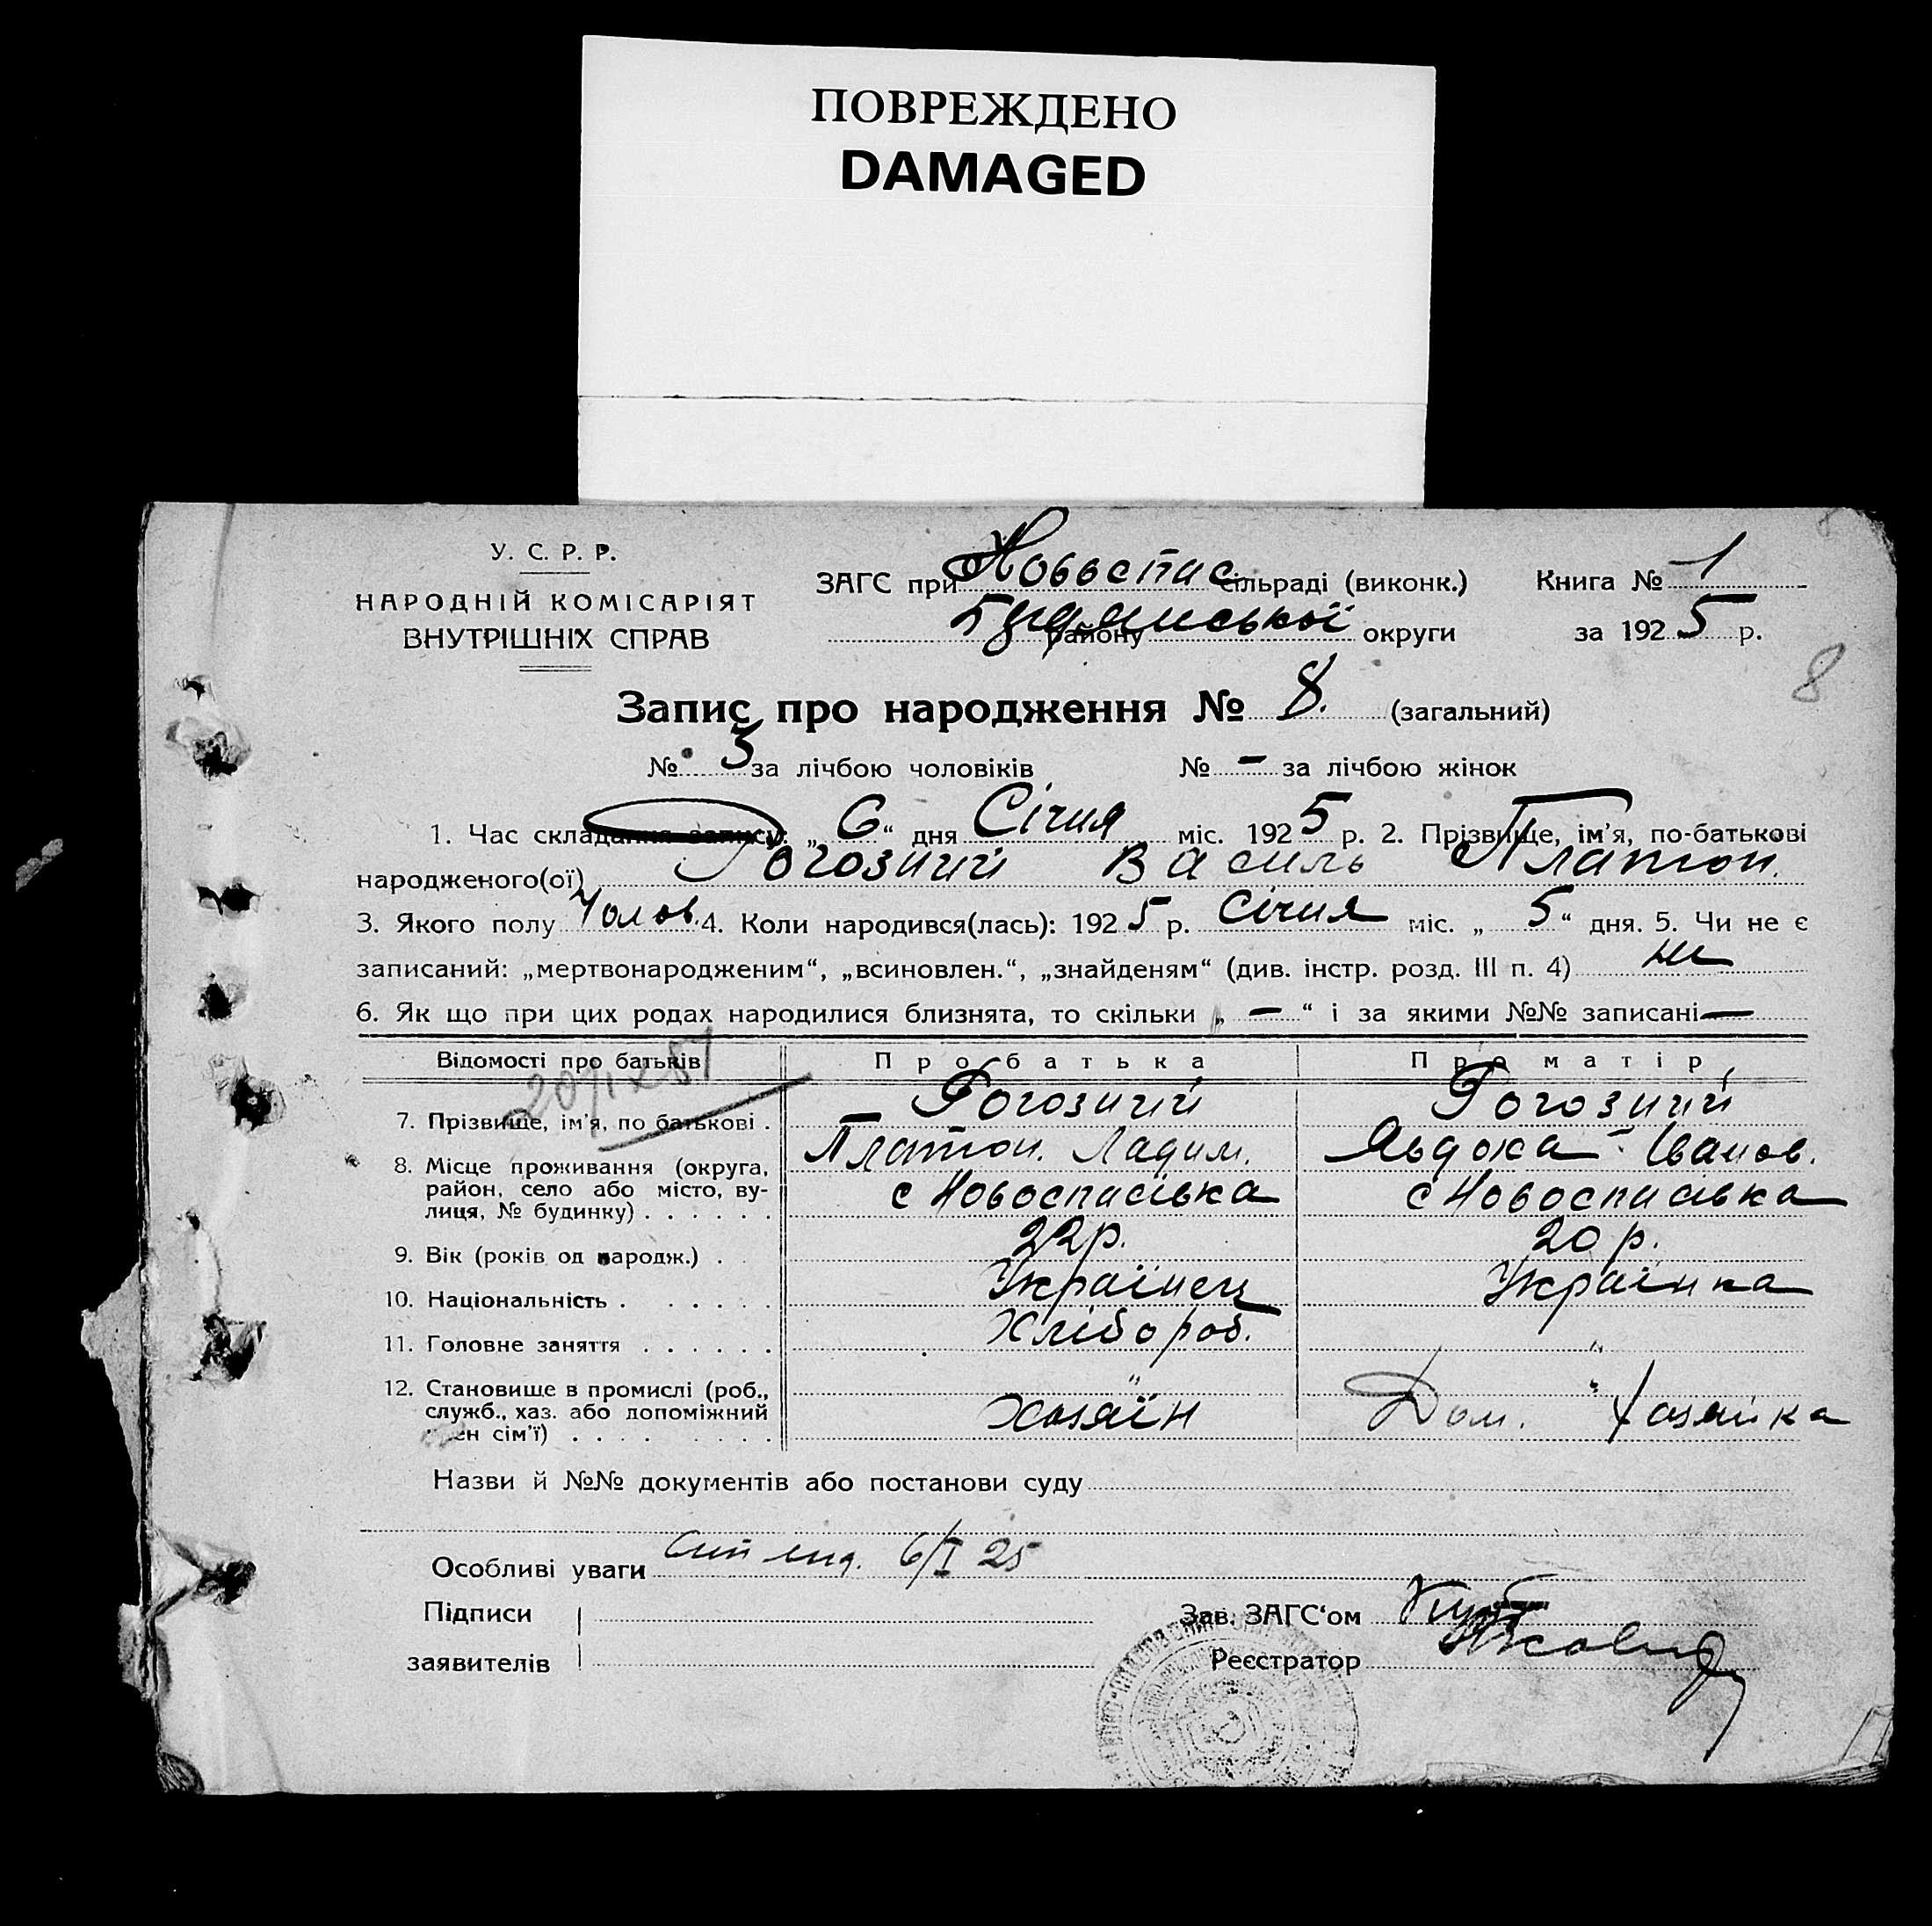 ПОВРЕЖДЕНО
DAMAGED
8
У. С. Р. Р.
НАРОДНІЙ КОМІСАРІЯТ
ВНУТРІШНІХ СПРАВ
ЗАГС при Новоспас. сільраді (виконк.) Книга № 1
району округи за 1925 р.
8
Запис про народження № 8. (загальний)
№ 3 за лічбою чоловіків № – за лічбою жінок
1. Час складання запису: „6“ дня Січня міс. 1925 р. 2. Прізвище, ім'я, по-батькові
народженого(ої) Рогозний Василь Платон.
3. Якого полу Чолов. 4. Коли народився(лась): 1925 р. Січня міс. „5“ дня. 5. Чи не є
записаний: „мертвонародженим“, „всиновлен.“, „знайденям“ (див. інстр. розд. III п. 4) не
6. Як що при цих родах народилися близнята, то скільки „–“ і за якими №№ записані –
Відомості про батьків Про батька Про матір
7. Прізвище, ім'я, по батькові . Рогозний Рогозний
Платон. Ладим. Явдоха Іванов.
8. Місце проживання (округа, район, село або місто, вулиця, № будинку) . . . . . . с Новоспасівка с Новоспасівка
9. Вік (років од народж.) . 22 р. 20 р.
10. Національність . . . . . . Українец Українка
11. Головне заняття . . . . . . Хлібороб. "
12. Становище в промислі (роб., служб., хаз. або допоміжний член сім'ї) . . . . " Хозяїн " Дом. Хазяйка
Назви й №№ документів або постанови суду
Особливі уваги 6/I 25
Підписи
заявителів
Зав. ЗАГС'ом
Реєстратор